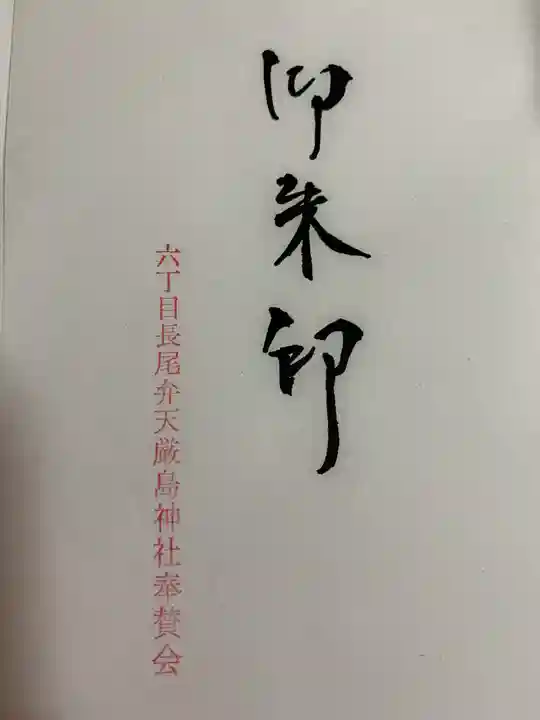 御朱印
六丁目長尾弁天厳島神社奉賛会